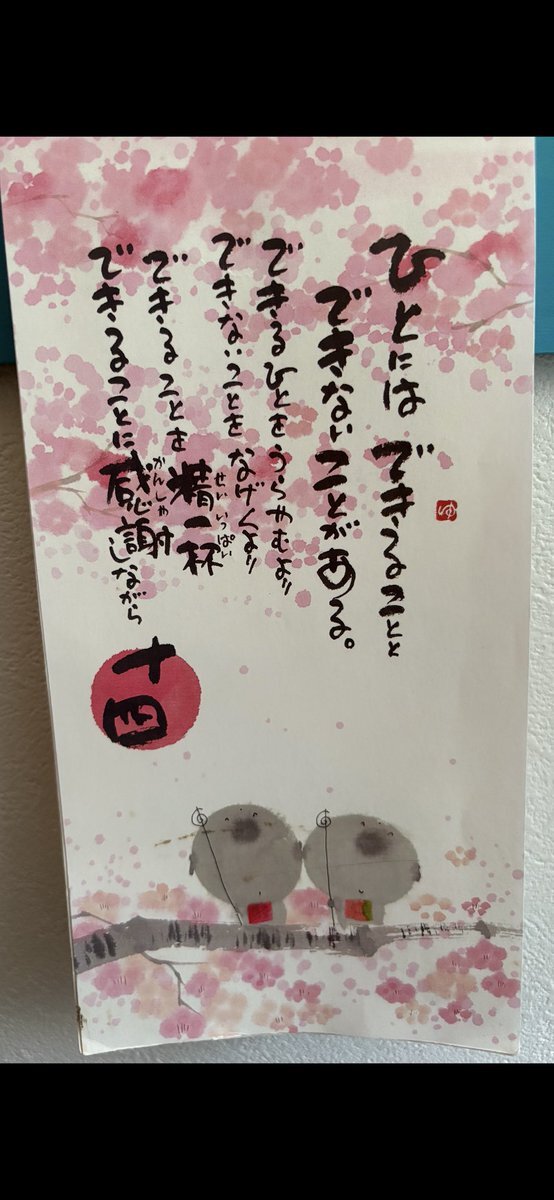 ひとには できることと
できないことがある。
できるひとをうらやむより
できないことをなげくより
できることを精一杯
せいいっぱい
できることに感謝しながら
かんしゃ
十四
ゆ